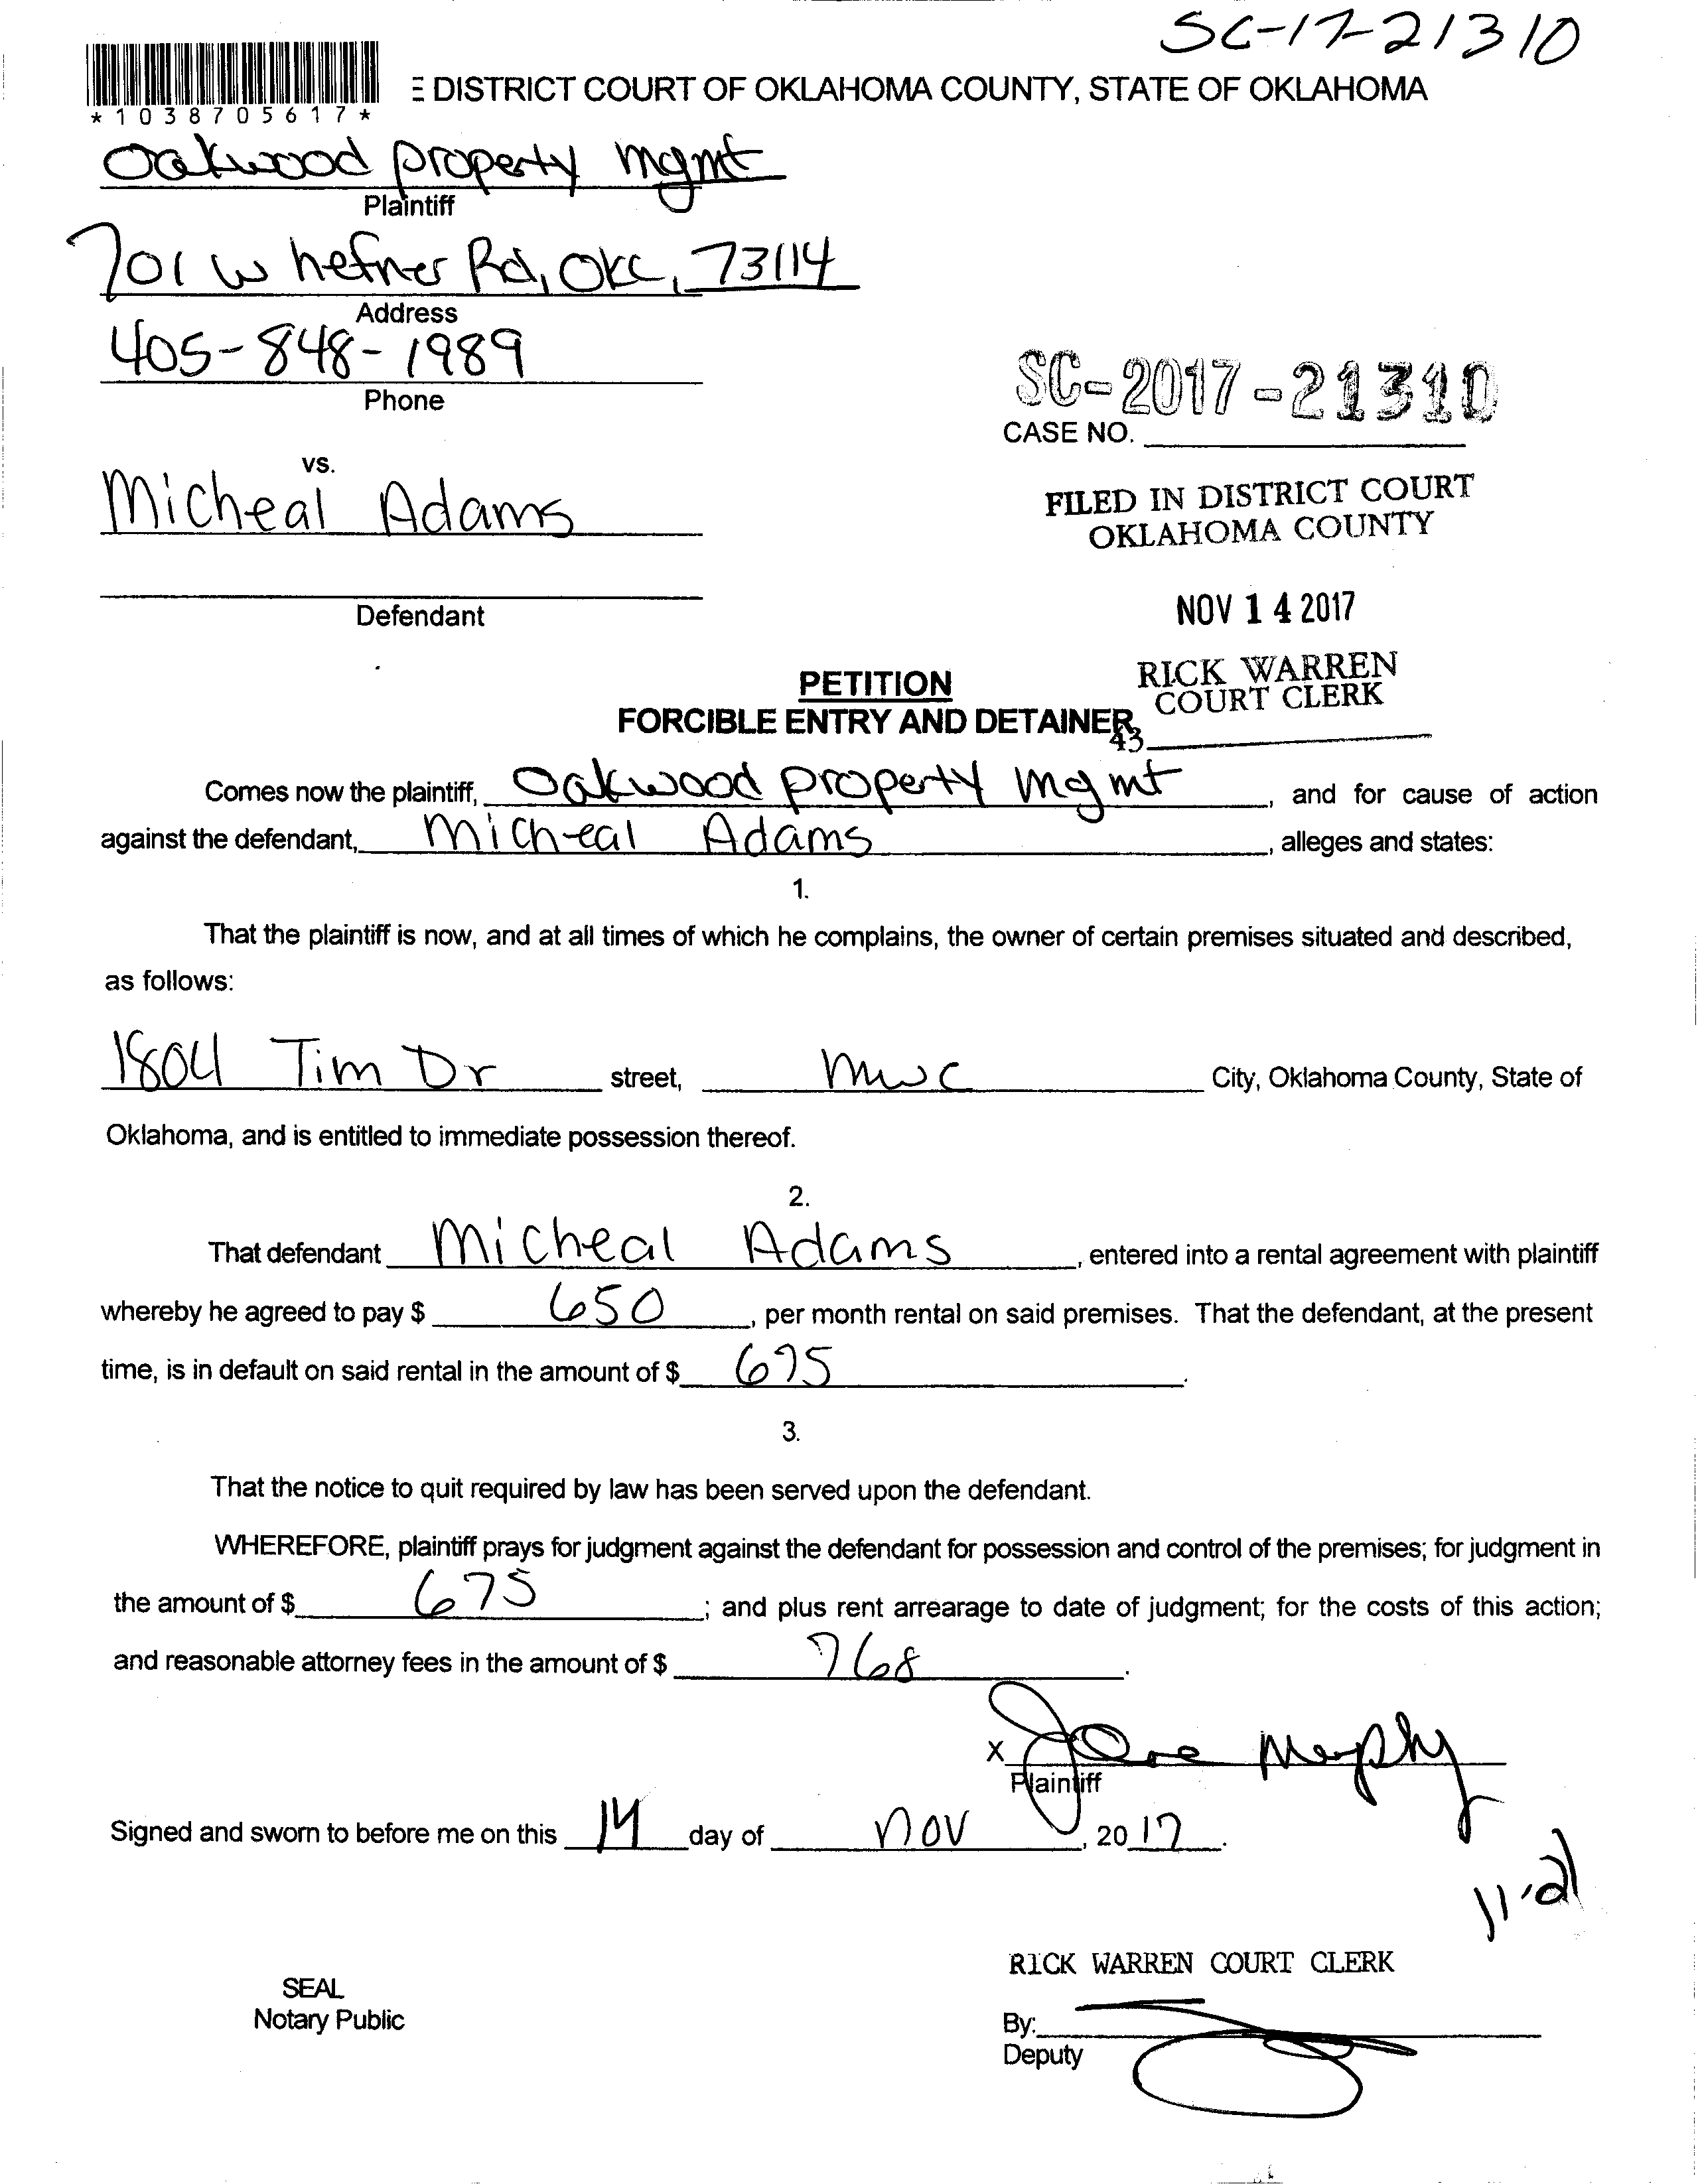 SC-17-21310
E DISTRICT COURT OF OKLAHOMA COUNTY, STATE OF OKLAHOMA
*1038705617*
Oakwood property mgmt
Plaintiff
701 W hefner Rd, OKC, 73114
Address
405-848-1989
Phone
SC-2017-21310
CASE NO.
vs.
Micheal Adams
FILED IN DISTRICT COURT
OKLAHOMA COUNTY
Defendant
NOV 14 2017
PETITION
FORCIBLE ENTRY AND DETAINER
RICK WARREN
COURT CLERK
43
Comes now the plaintiff, Oakwood property mgmt, and for cause of action
against the defendant, Micheal Adams, alleges and states:
1.
That the plaintiff is now, and at all times of which he complains, the owner of certain premises situated and described,
as follows:
1804 Tim Dr street, mwc City, Oklahoma County, State of
Oklahoma, and is entitled to immediate possession thereof.
2.
That defendant Micheal Adams, entered into a rental agreement with plaintiff
whereby he agreed to pay $ 650, per month rental on said premises. That the defendant, at the present
time, is in default on said rental in the amount of $ 675.
3.
That the notice to quit required by law has been served upon the defendant.
WHEREFORE, plaintiff prays for judgment against the defendant for possession and control of the premises; for judgment in
the amount of $ 675; and plus rent arrearage to date of judgment; for the costs of this action;
and reasonable attorney fees in the amount of $ 768.
X Murphy
Plaintiff
Signed and sworn to before me on this 14 day of nov, 20 17.
11-21
RICK WARREN COURT CLERK
SEAL
Notary Public
By:
Deputy